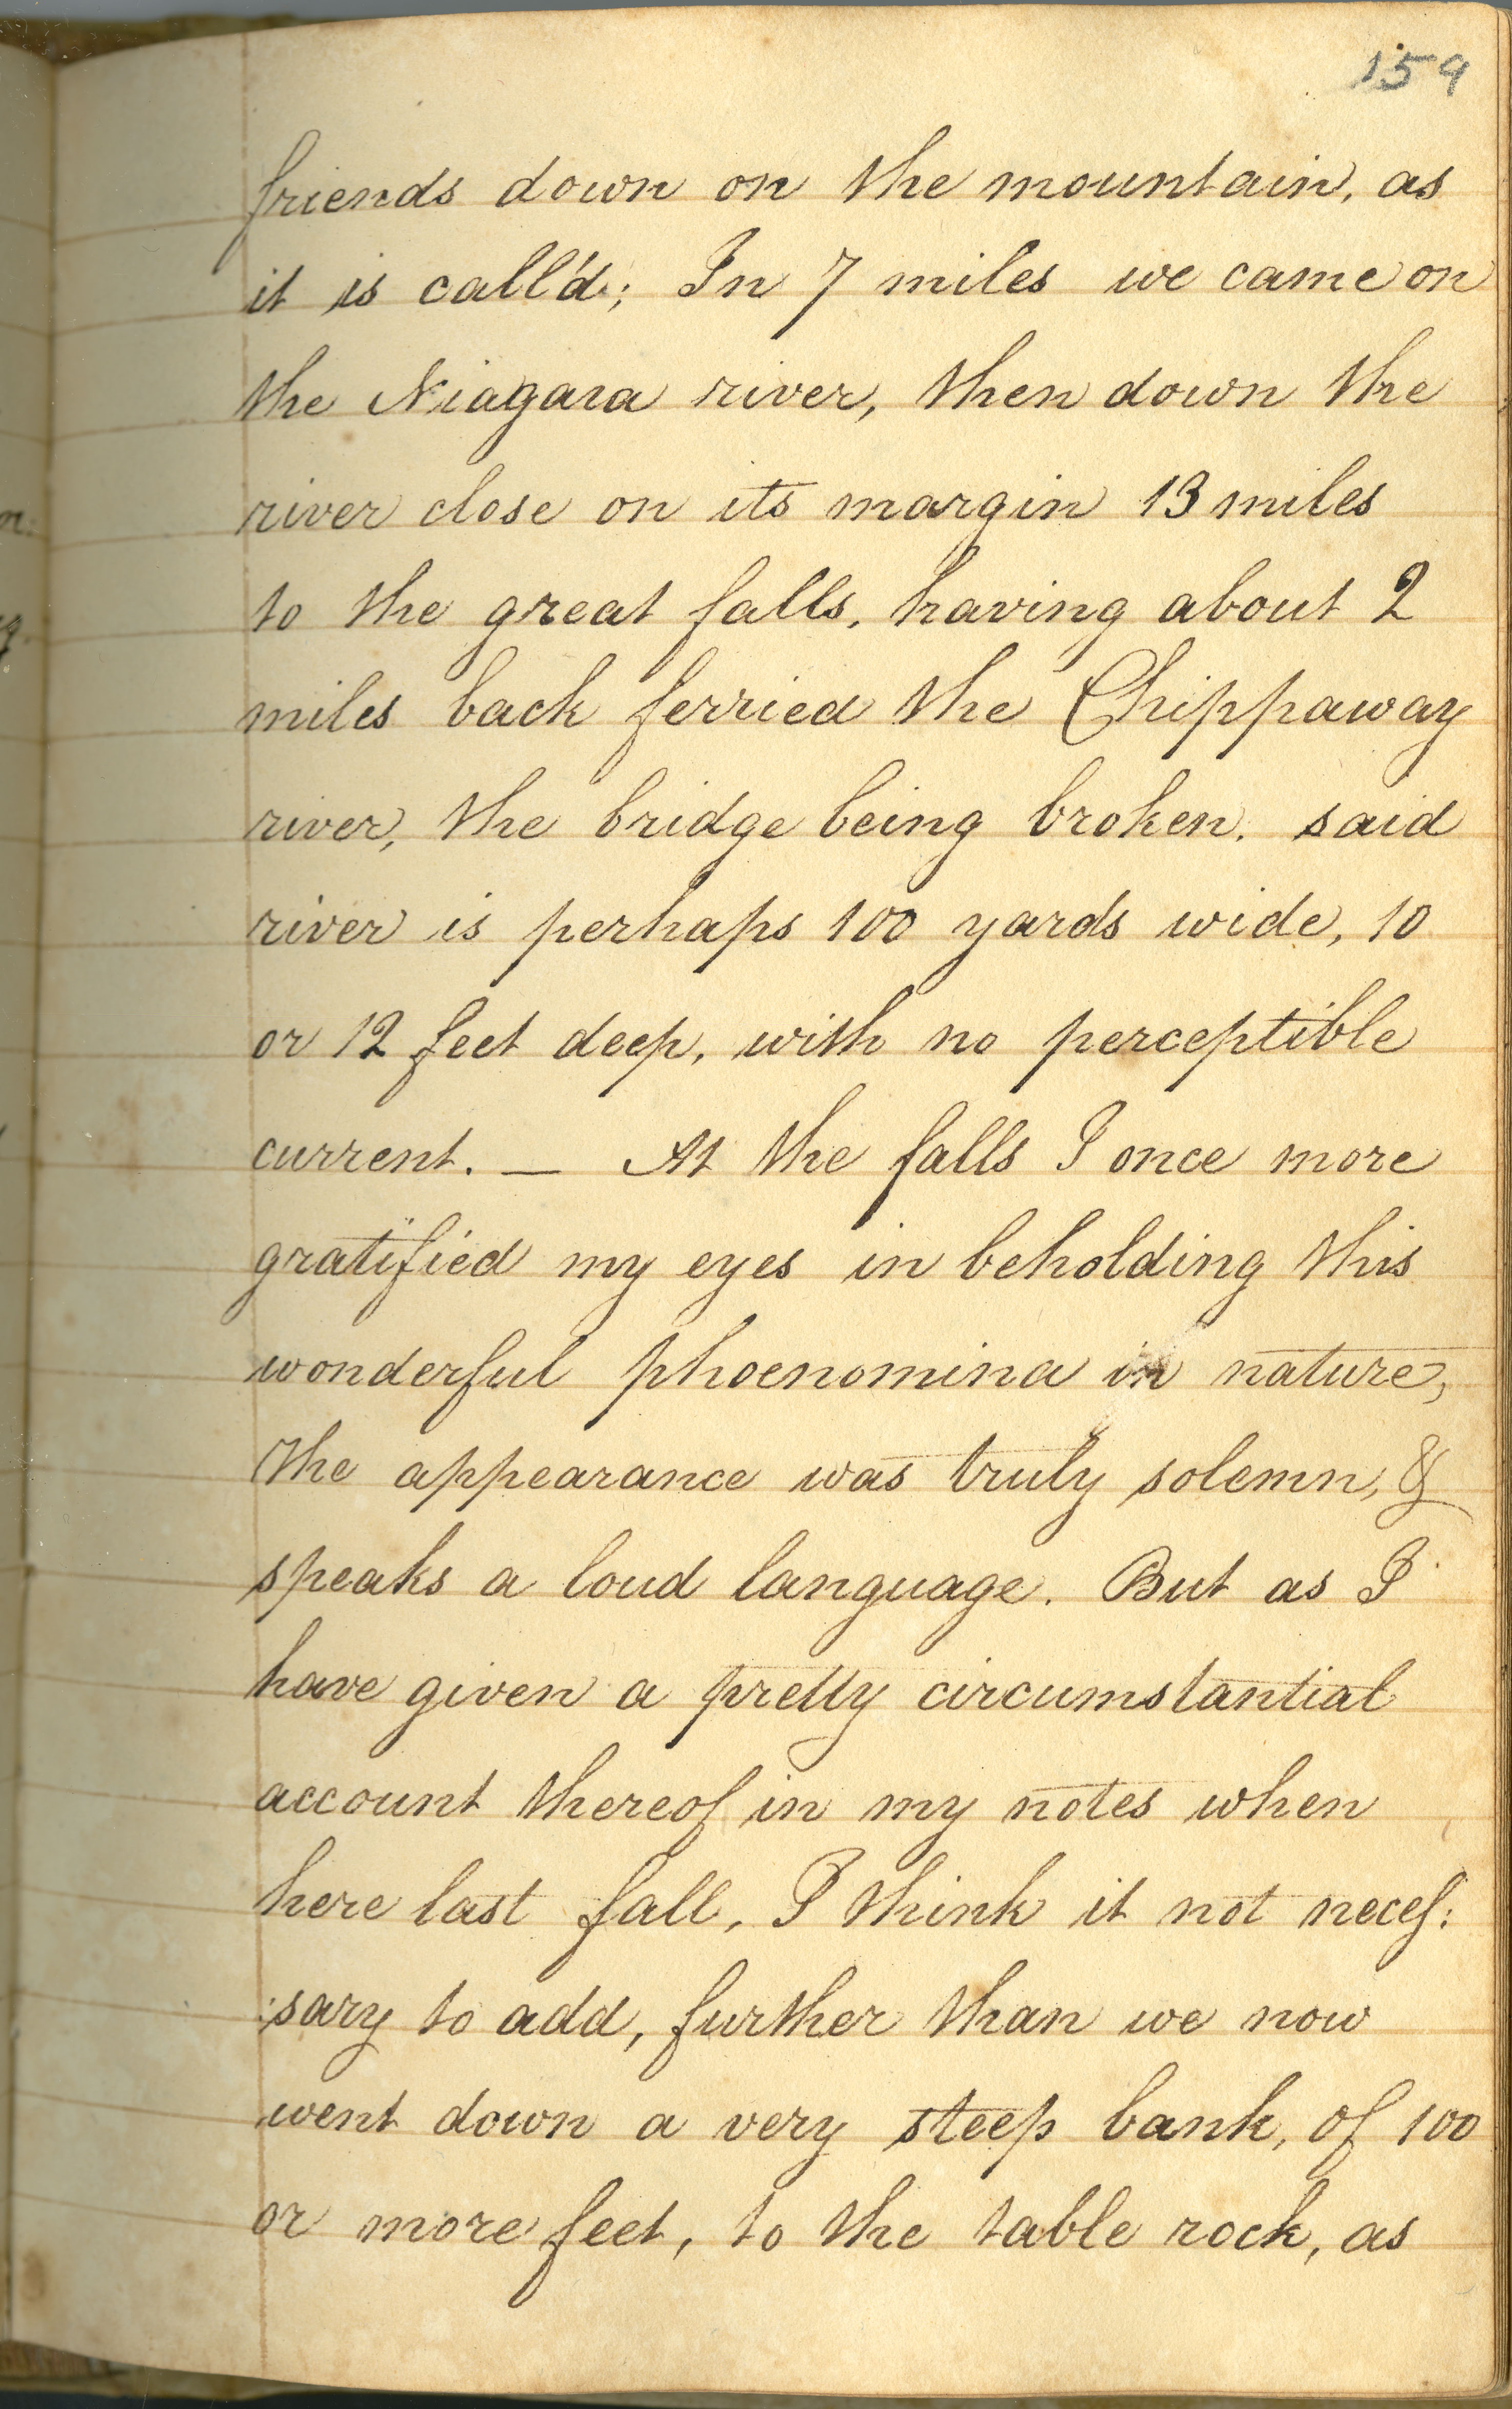 159
friends down on the mountain, as
it is call'd; In 7 miles we came on
the Niagara river, then down the
river close on its margin 13 miles
to the great falls, having about 2
miles back ferried the Chippaway
river, the bridge being broken. said
river is perhaps 100 yards wide, 10
or 12 feet deep, with no perceptible
current. — At the falls I once more
gratified my eyes in beholding this
wonderful phoenomina in nature,
The appearance was truly solemn, &
speaks a loud language. But as I
have given a pretty circumstantial
account thereof in my notes when
here last fall, I think it not neceſ:
:sary to add, further than we now
went down a very steep bank, of 100
or more feet, to the table rock, as